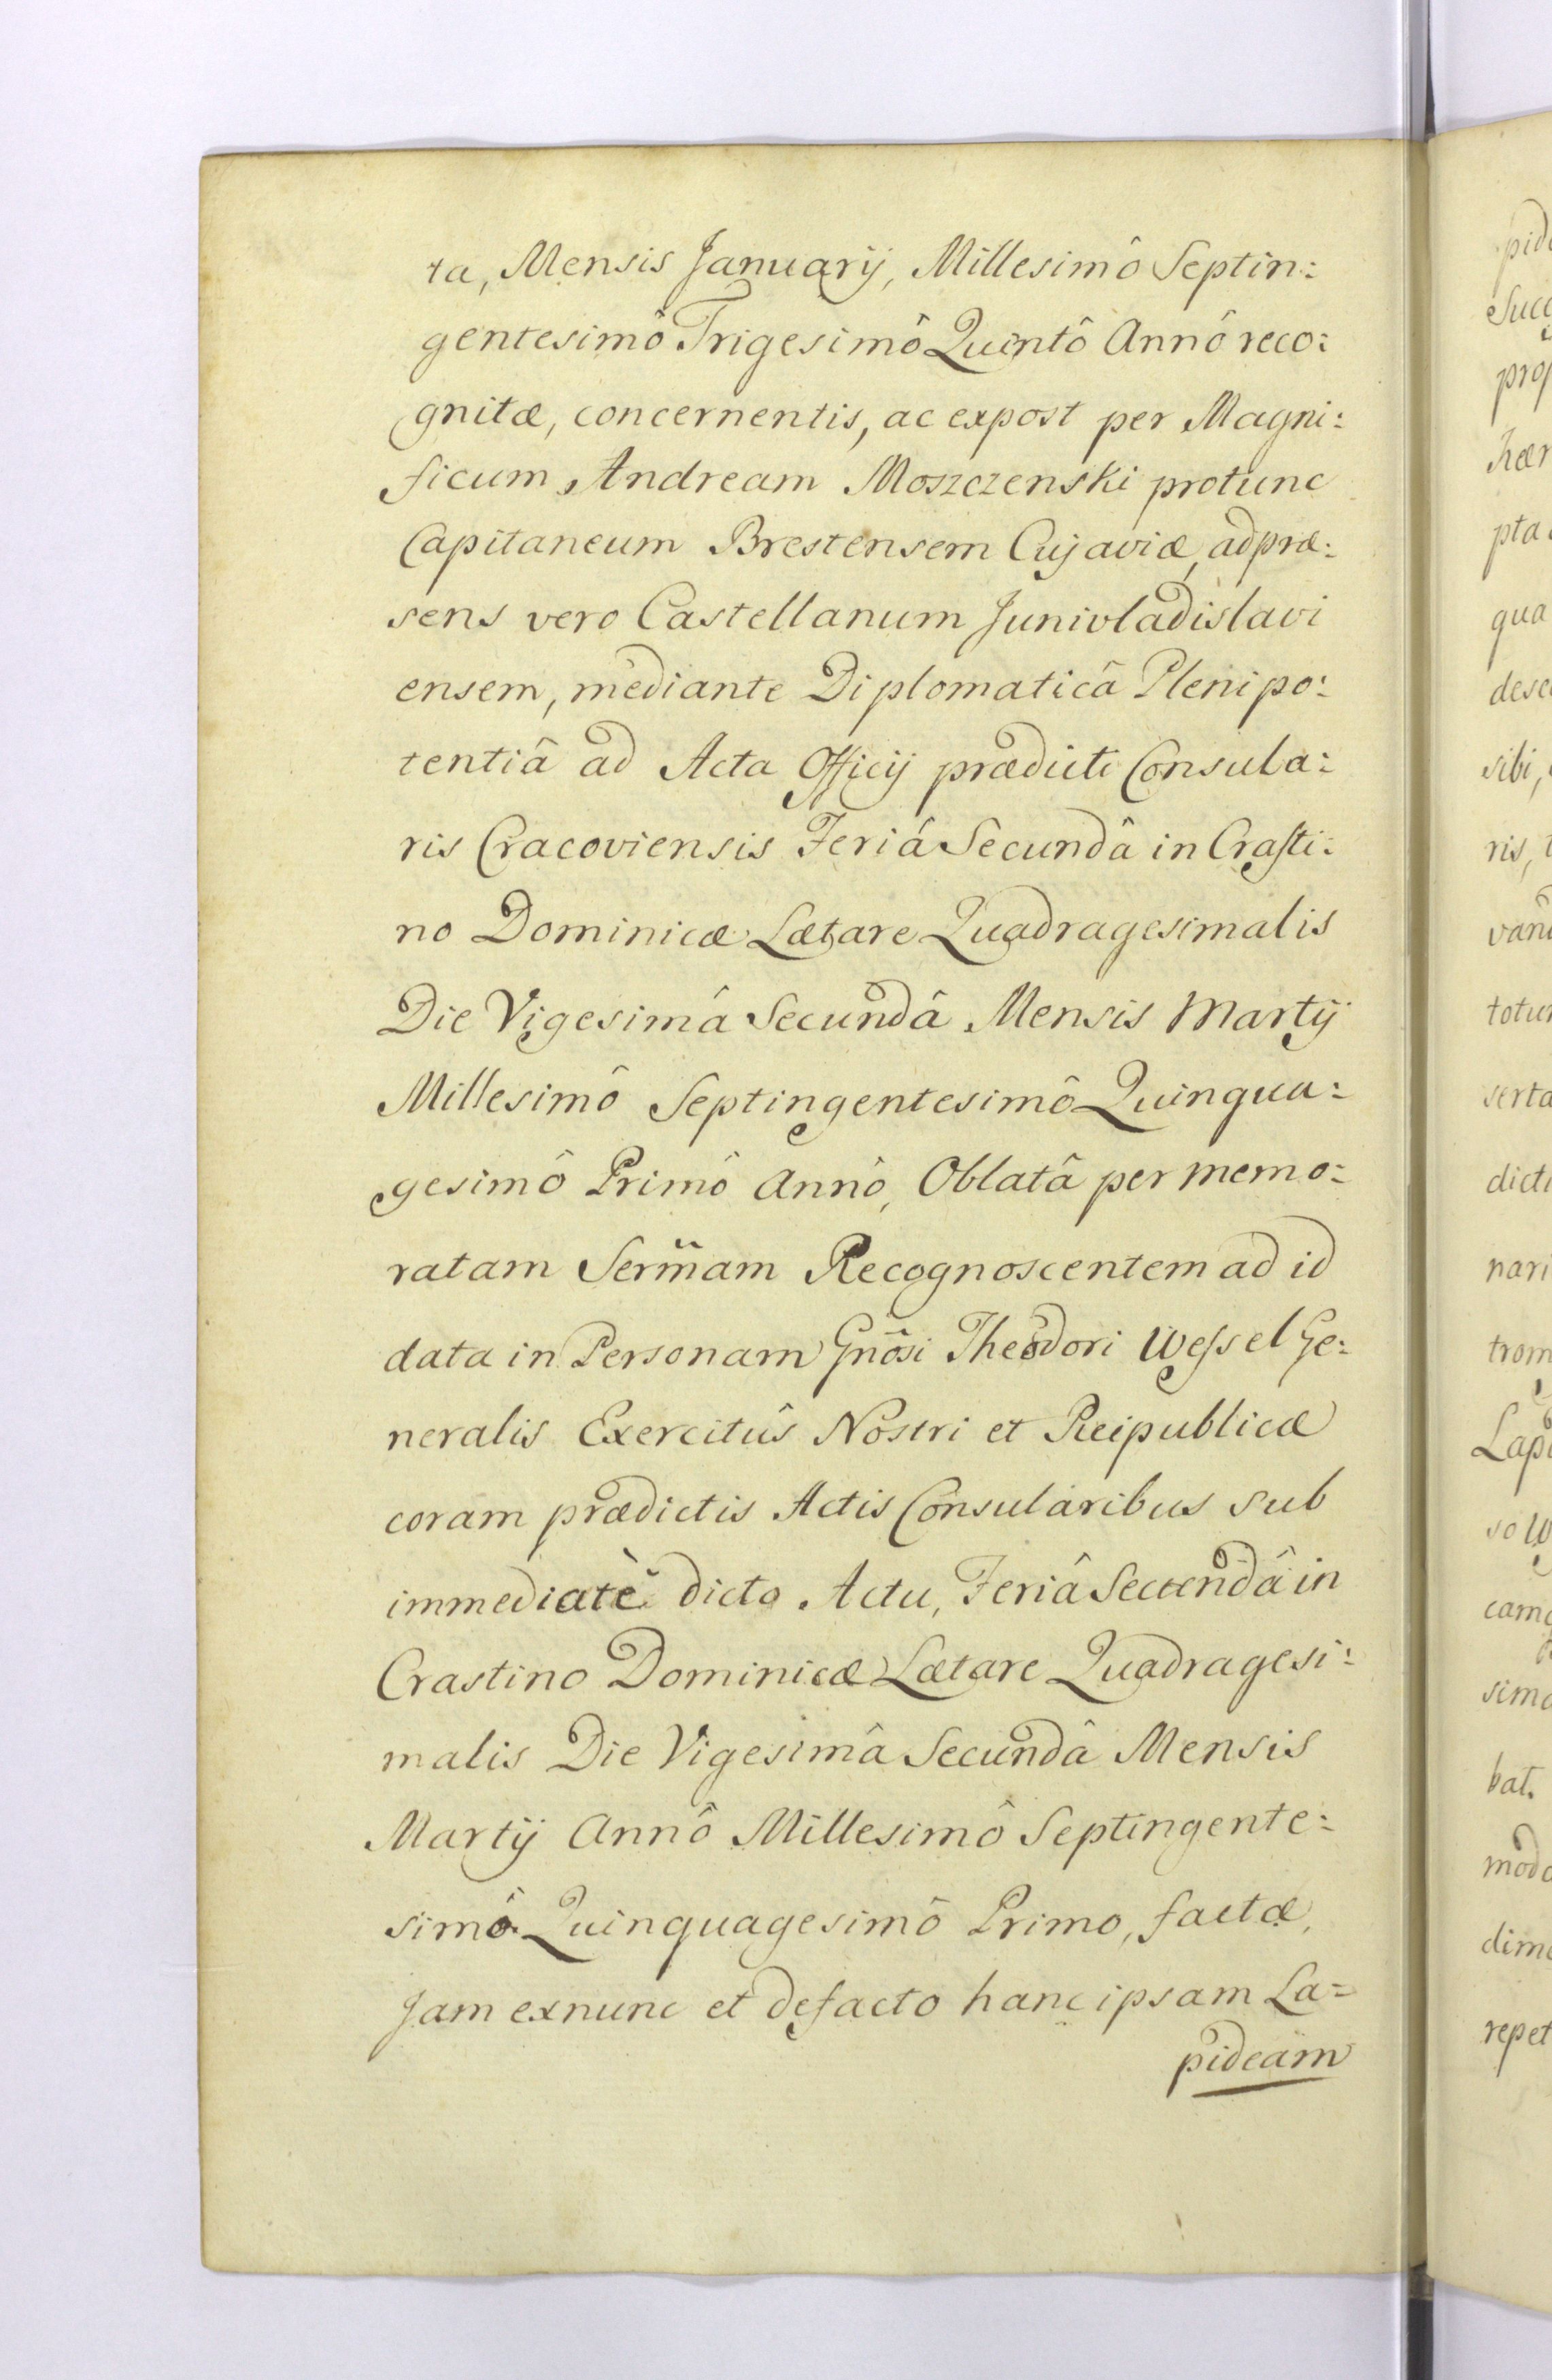 ta, Mensis Januarij, Millesimô Septin:
gentesimô Trigesimô Quintô Annô reco:
gnitæ, concernentis, ac expost per Magni:
ficum Andream Moszczenski protunc
Capitaneum Brestensem Cujaviæ, adpræ:
sens vero Castellanum Junivladislavi
ensem, mediante Diplomaticâ Plenipo:
tentiâ ad Acta Officij prædicti Consula:
ris Cracoviensis Feriâ Secundâ in Crasti:
no Dominicæ Lætare Quadragesimalis
Die Vigesimâ Secundâ Mensis Martij
Millesimô Septingentesimô Quinqua:
gesimô Primô Annô, Oblatâ per memo:
ratam Serm̃am Recognoscentem ad id
data in Personam Gnõsi Theodori Wessel Ge:
neralis Exercitûs Nostri et Reipublicæ
coram prædictis Actis Consularibus sub
immediatè dicto Actu, Feriâ Secundâ in
Crastino Dominicæ Lætare Quadragesi:
malis Die Vigesimâ Secundâ Mensis
Martij Annô Millesimô Septingente:
simô Quinquagesimô Primo, factæ,
Jam exnunc et defacto hanc ipsam La=
pideam
pid
Succ
prop
hær
pta
qua
desc
sibi,
ris,
van
totu
serta
dicti
nari
trom
Lapi
so
cam
sim
bat.
modo
dim
repet